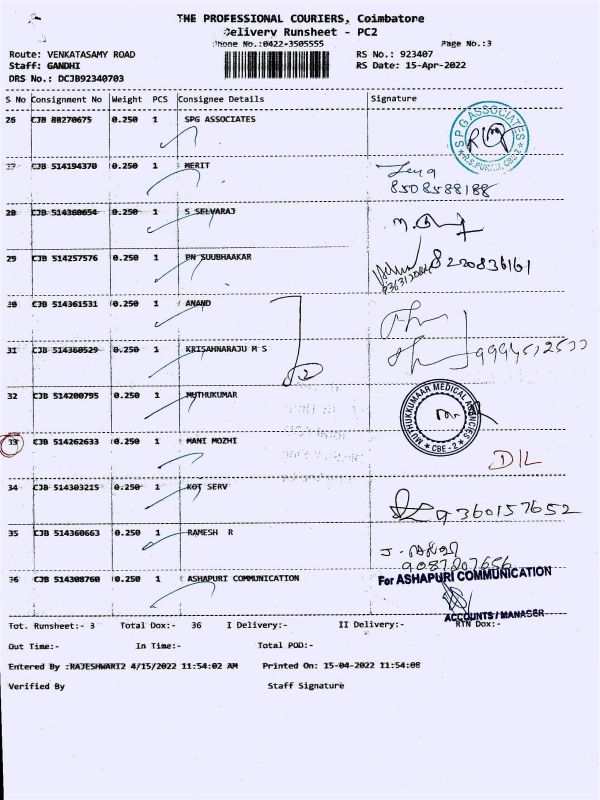 THE PROFESSIONAL COURIERS, Coimbatore
Delivery Runsheet - PC2
Phone No.:0422-3505555
Page No.:3
Route: VENKATASAMY ROAD
RS No.: 923407
Staff: GANDHI
RS Date: 15-Apr-2022
DRS No.: DCJB92340703
S No Consignment No Weight PCS Consignee Details Signature
26 CJB 88270675 0.250 1 SPG ASSOCIATES
SPG ASSOCIATES
27 CJB 514194370 0.250 1 MERIT
8508588188
28 CJB 514360654 0.250 1 S SELVARAJ
29 CJB 514257576 0.250 1 PN SUUBHAAKAR
8220836161
30 CJB 514361531 0.250 1 ANAND
31 CJB 514360529 0.250 1 KRISAHNARAJU M S
32 CJB 514200795 0.250 1 MUTHUKUMAR
MUTHUKKUMAAR MEDICAL AGENCIES
CBE - 2
33 CJB 514262633 0.250 1 MANI MOZHI
D/L
34 CJB 514303215 0.250 1 KOT SERV
9360157652
35 CJB 514360663 0.250 1 RAMESH R
9087807656
36 CJB 514308760 0.250 1 ASHAPURI COMMUNICATION
For ASHAPURI COMMUNICATION
ACCOUNTS / MANAGER
Tot. Runsheet:- 3 Total Dox:- 36 I Delivery:- II Delivery:- RTN Dox:-
Out Time:- In Time:- Total POD:-
Entered By :RAJESHWARI2 4/15/2022 11:54:02 AM Printed On: 15-04-2022 11:54:08
Verified By Staff Signature